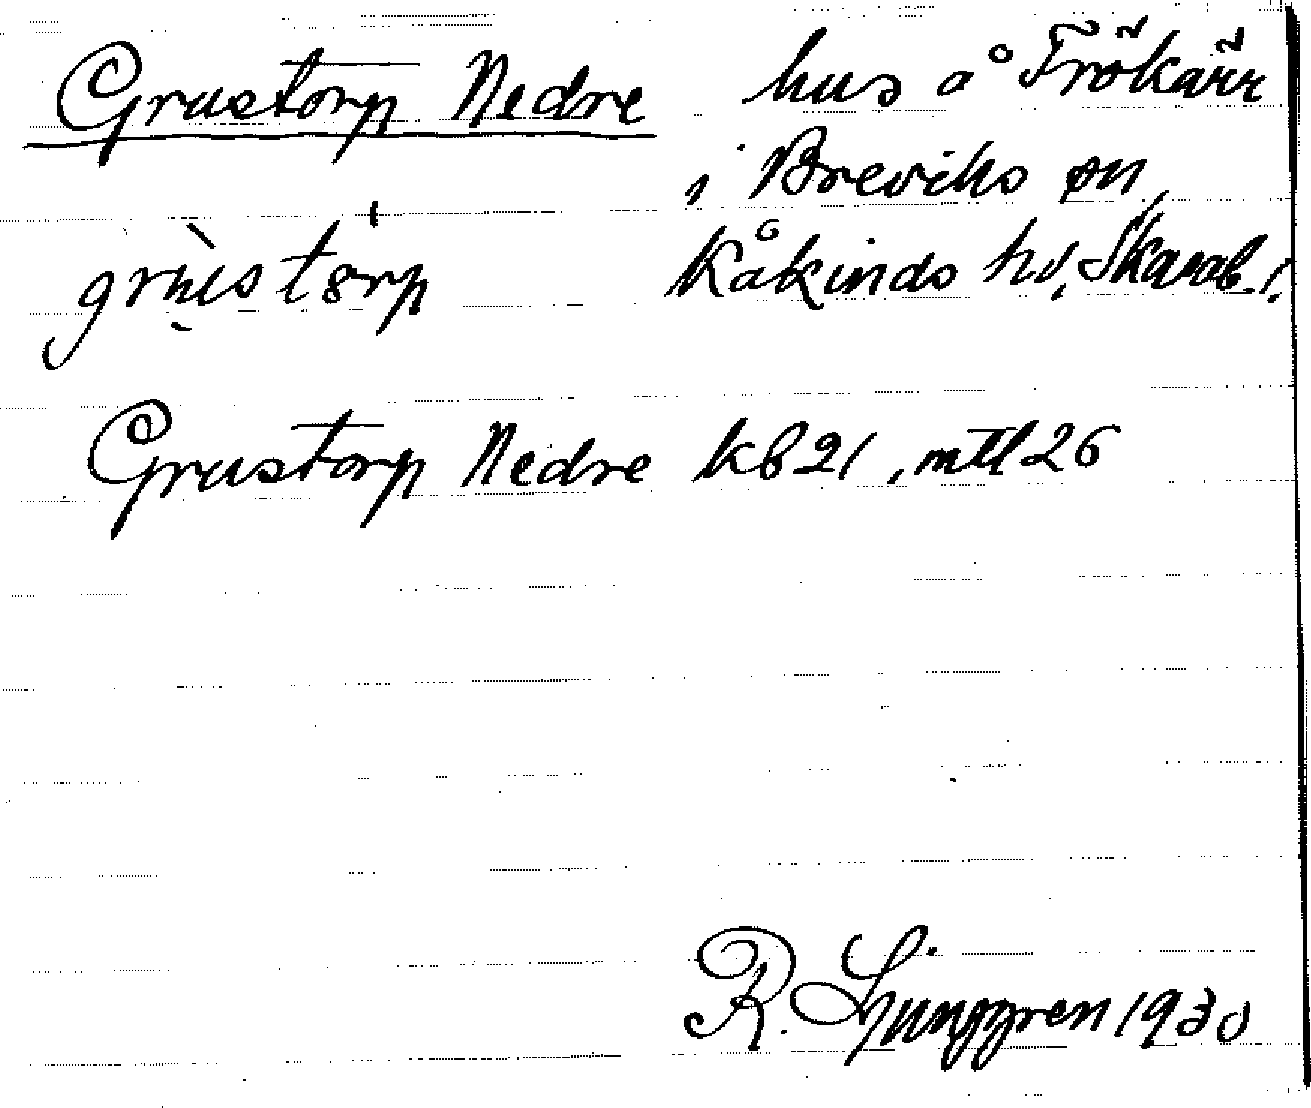 Grustorp Nedre hus å Frökärr
i Breviks sn,
grùstårp Kåkinds hd, Skarab. l.
Grustorp Nedre kb 21, mtl 26
R. Ljunggren 1930